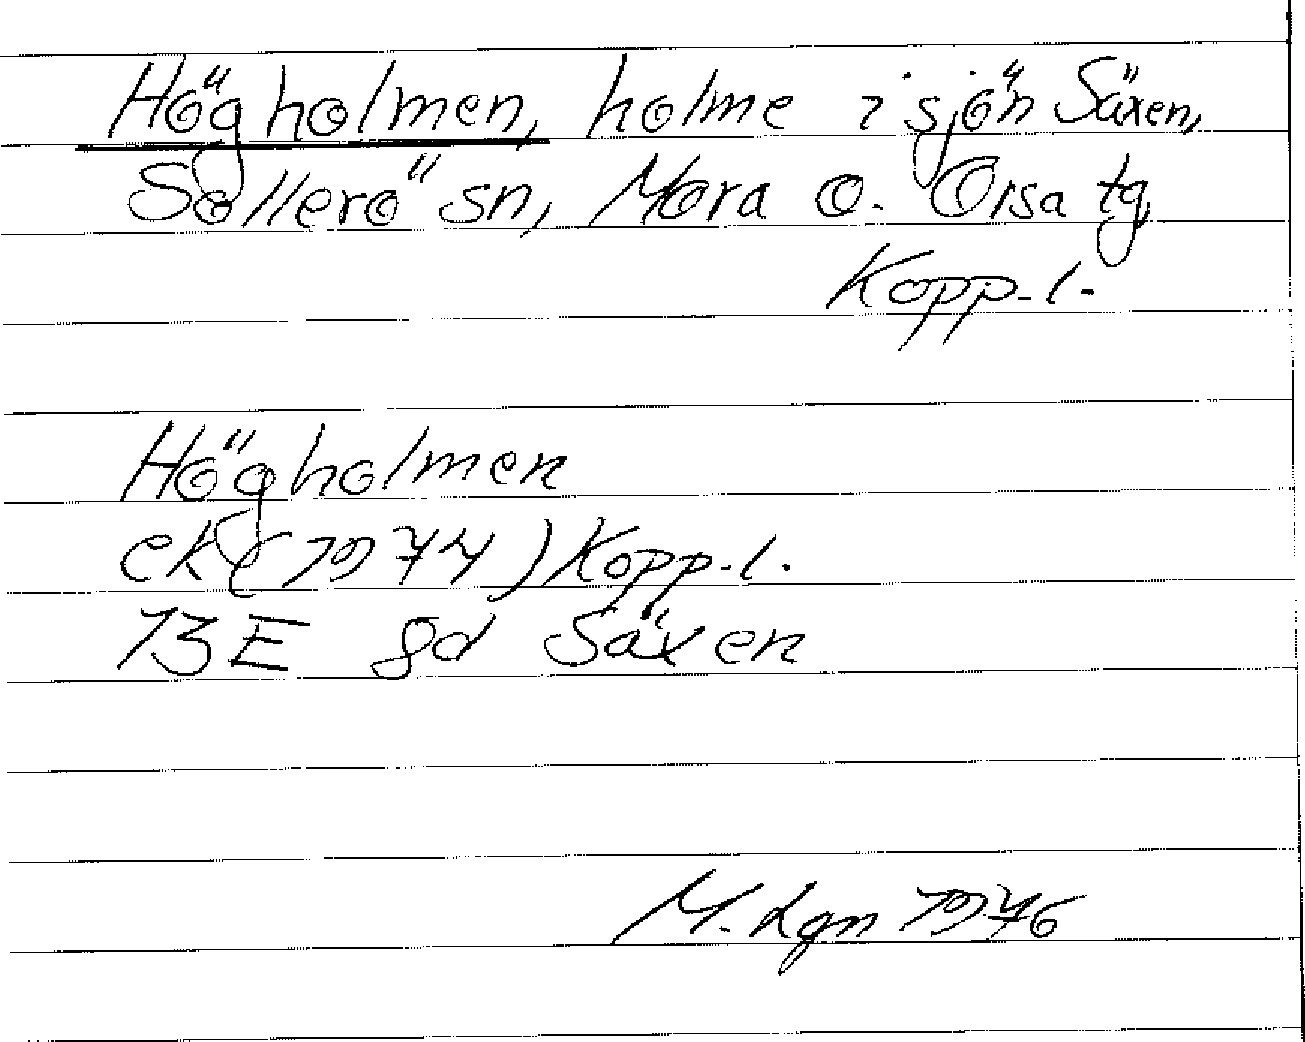 Högholmen, holme i sjön Säxen,
Sollerö sn, Mora o. Orsa tg,
Kopp. l.
Högholmen
ek (1974) Kopp. l.
13E 8d Säxen
M. Lgn 1976